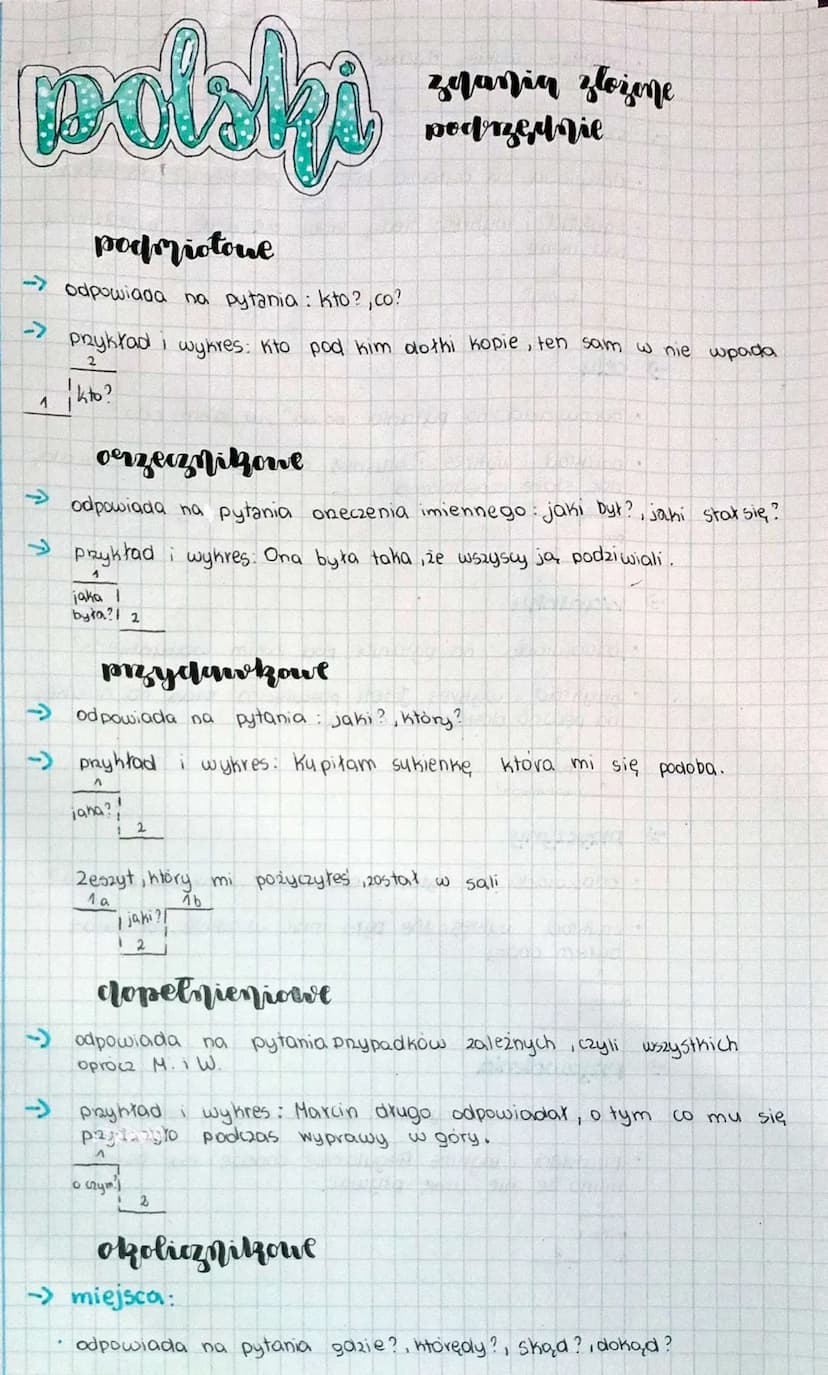 polski
zdania złożone
podrzędnie
podmiotowe
-> odpowiada na pytania : kto?, co?
-> przykład i wykres: Kto pod kim dołki kopie, ten sam w nie wpada
2
1 kto?
orzecznikowe
-> odpowiada na pytania orzeczenia imiennego : jaki był?, jaki stał się?
-> przykład i wykres: Ona była taka, że wszyscy ją podziwiali.
1
jaka
była? 2
przydawkowe
-> odpowiada na pytania : jaki?, który?
-> przykład i wykres: Kupiłam sukienkę która mi się podoba.
1
jaka?
2
Zeszyt, który mi pożyczyłeś, został w sali
1a 1b
jaki?
2
dopełnieniowe
-> odpowiada na pytania przypadków zależnych, czyli wszystkich
oprócz M. i W.
-> przykład i wykres: Marcin długo odpowiadał, o tym co mu się
podczas wyprawy w góry.
1
o czym?
2
okolicznikowe
-> miejsca:
· odpowiada na pytania gdzie?, którędy?, skąd?, dokąd?